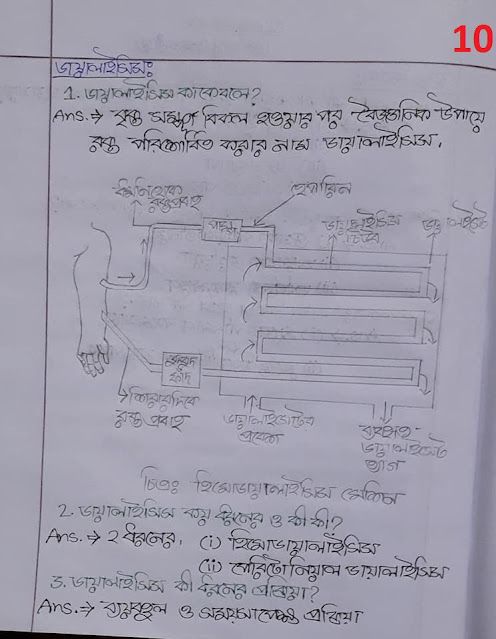 10
ডায়ালাইসিসঃ
1. ডায়ালাইসিস কাকে বলে?
Ans. → বৃক্ক সম্পূর্ণ বিকল হওয়ার পর বৈজ্ঞানিক উপায়ে
রক্ত পরিশোধিত করার নাম ডায়ালাইসিস.
ধমনি থেকে
রক্তপ্রবাহ
পাম্প
হেপারিন
ডায়ালাইসিস
টিউব
ডায়ালাইসেট
বুদবুদ
ফাঁদ
শিরার দিকে
রক্ত প্রবাহ
ডায়ালাইসেটের
প্রবেশ
ডায়ালাইসেট
ত্যাগ
চিত্রঃ হিমোডায়ালাইসিস মেশিন
2. ডায়ালাইসিস কয় ধরনের ও কী কী?
Ans. → 2 ধরনের. (i) হিমোডায়ালাইসিস
(ii) পেরিটোনিয়াল ডায়ালাইসিস
3. ডায়ালাইসিস কী ধরনের প্রক্রিয়া?
Ans. → ব্যয়বহুল ও সময়সাপেক্ষ প্রক্রিয়া